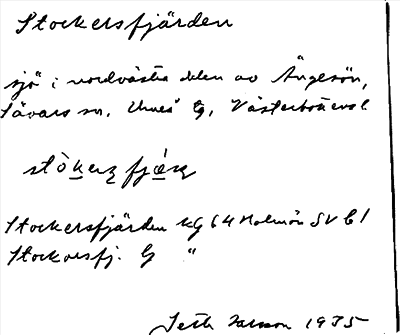 Stockersfjärden
sjö i nordvästra delen av Ängesön,
Sävars sn, Umeå tg, Västerbotten
Stockersfjärden KG 64 Holmön SV C1
Stockersfj. G "
Seth Larsson 1935